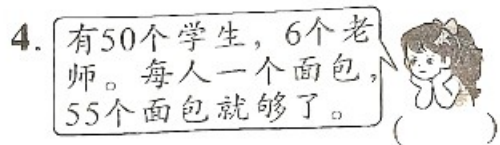 4. 有50个学生，6个老
师。每人一个面包，
55个面包就够了。
(    )